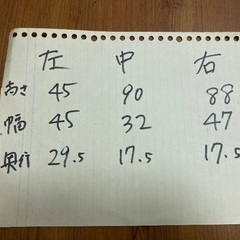 左 中 右
高さ 45 90 88
幅 45 32 47
奥行 29.5 17.5 17.5